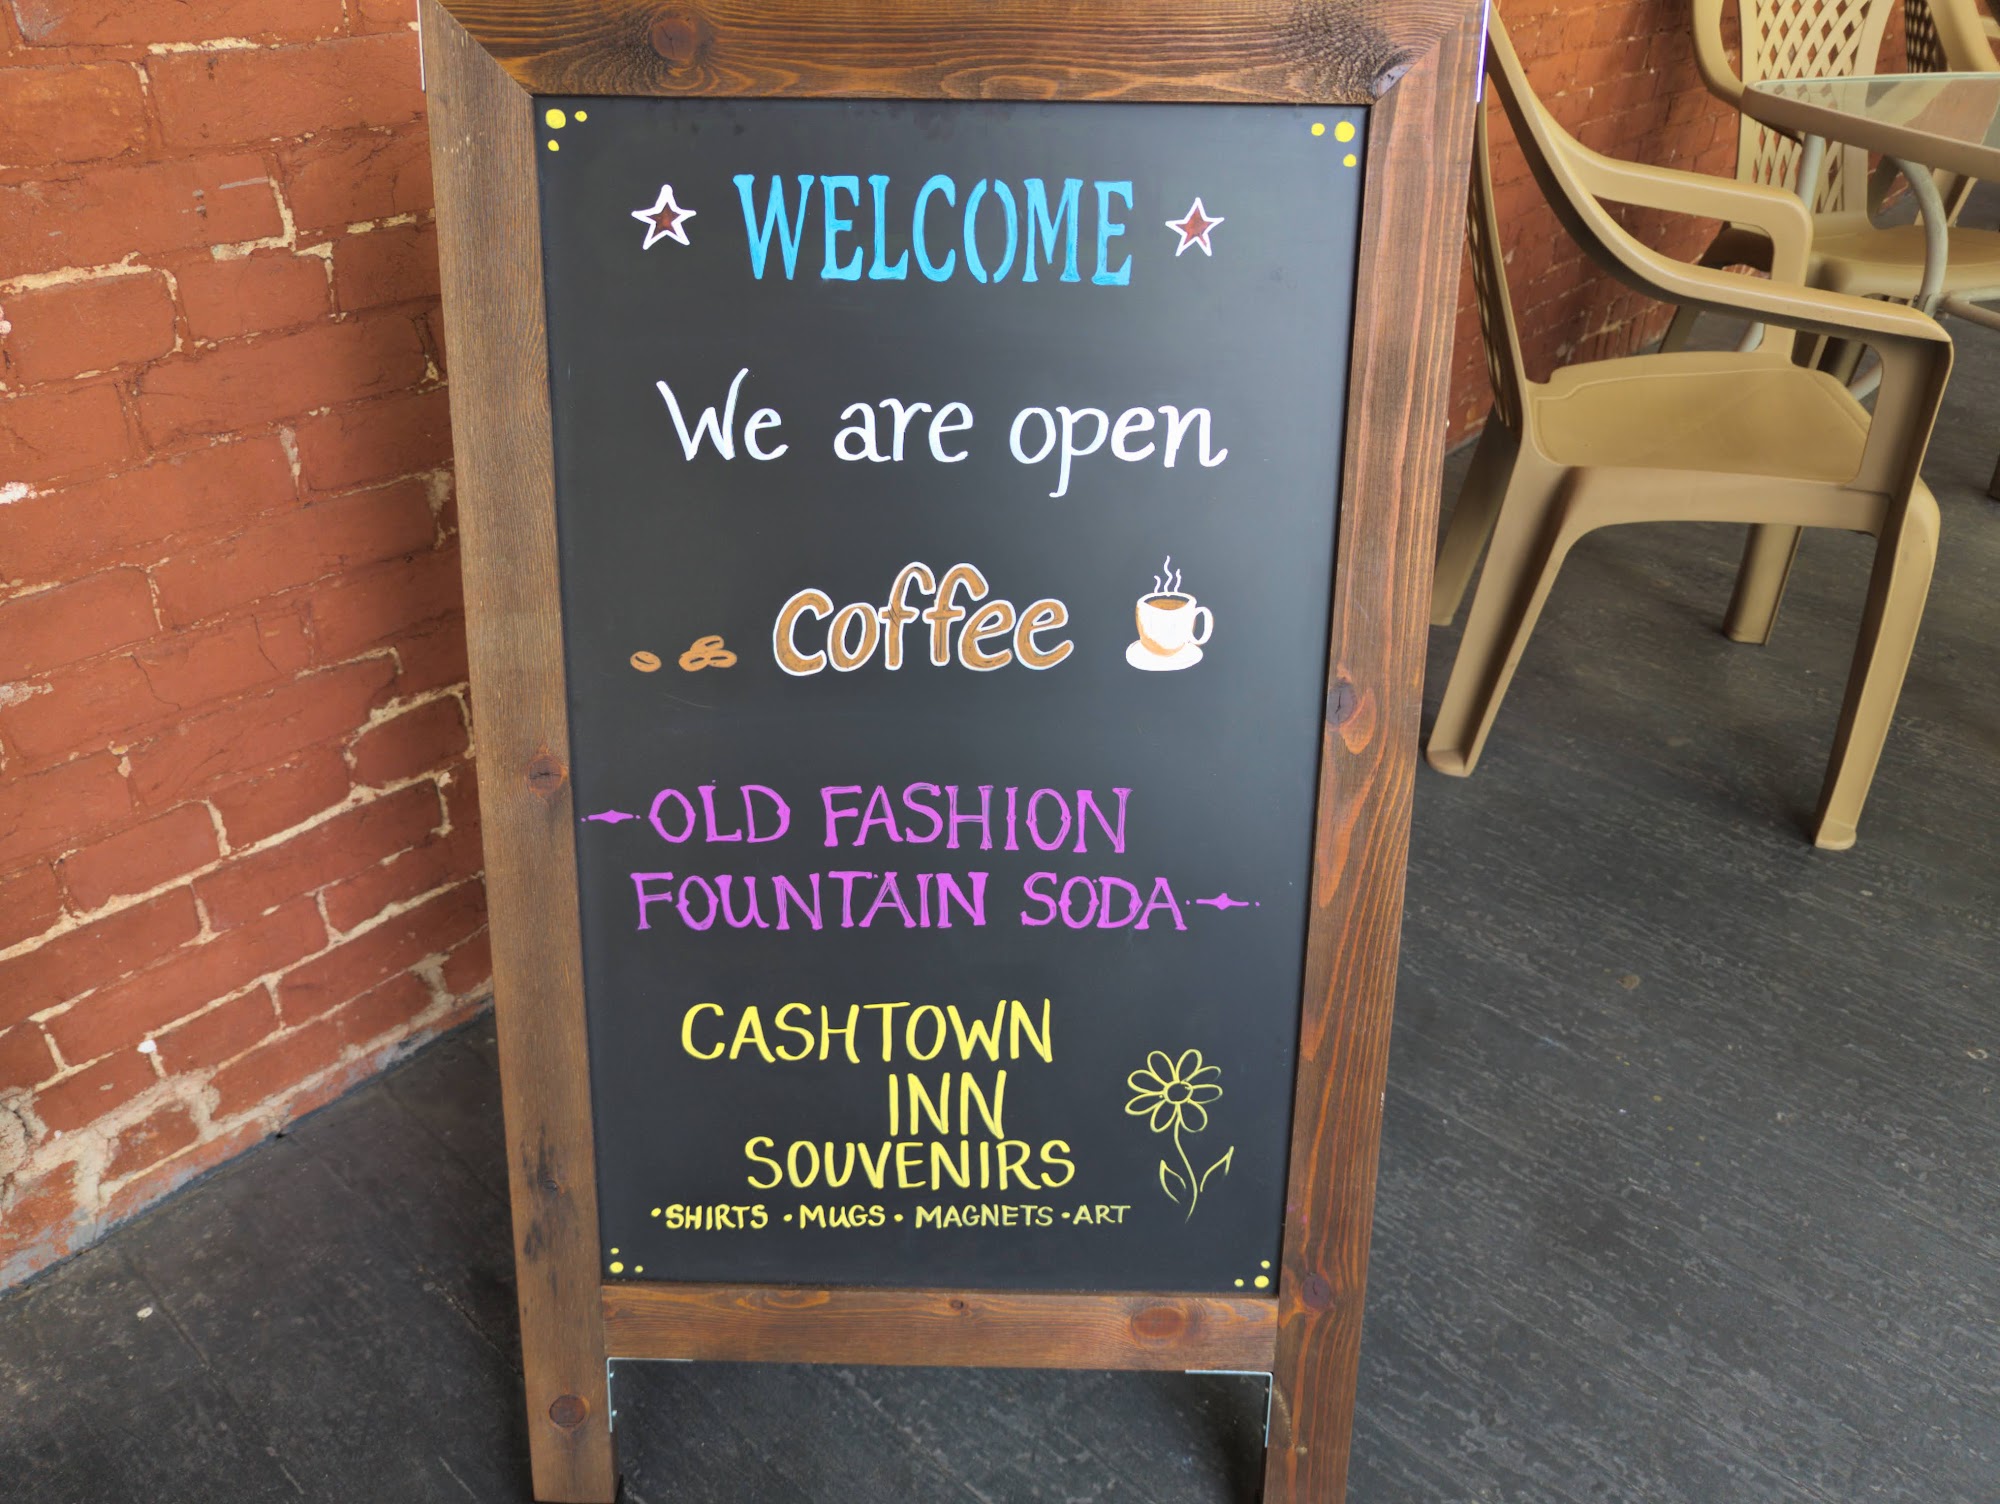 WELCOME
We are open
coffee
OLD FASHION
FOUNTAIN SODA
CASHTOWN
INN
SOUVENIRS
•SHIRTS •MUGS • MAGNETS •ART